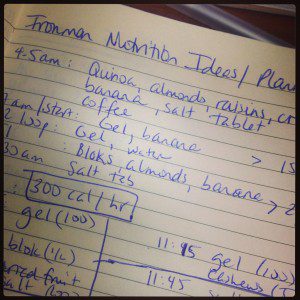 Ironman Nutrition Ideas/ Plan
4-5am: Quinoa, almonds, raisins,
banana, salt tablet
coffee
am/start: Gel, banana
loop: Gel, water
30am: Bloks, almonds, banana > 2
salt tab
300 cal/hr
gel (100)
11:15 gel (100)
blok (1/2)
cashews
11:45
fruit
salt